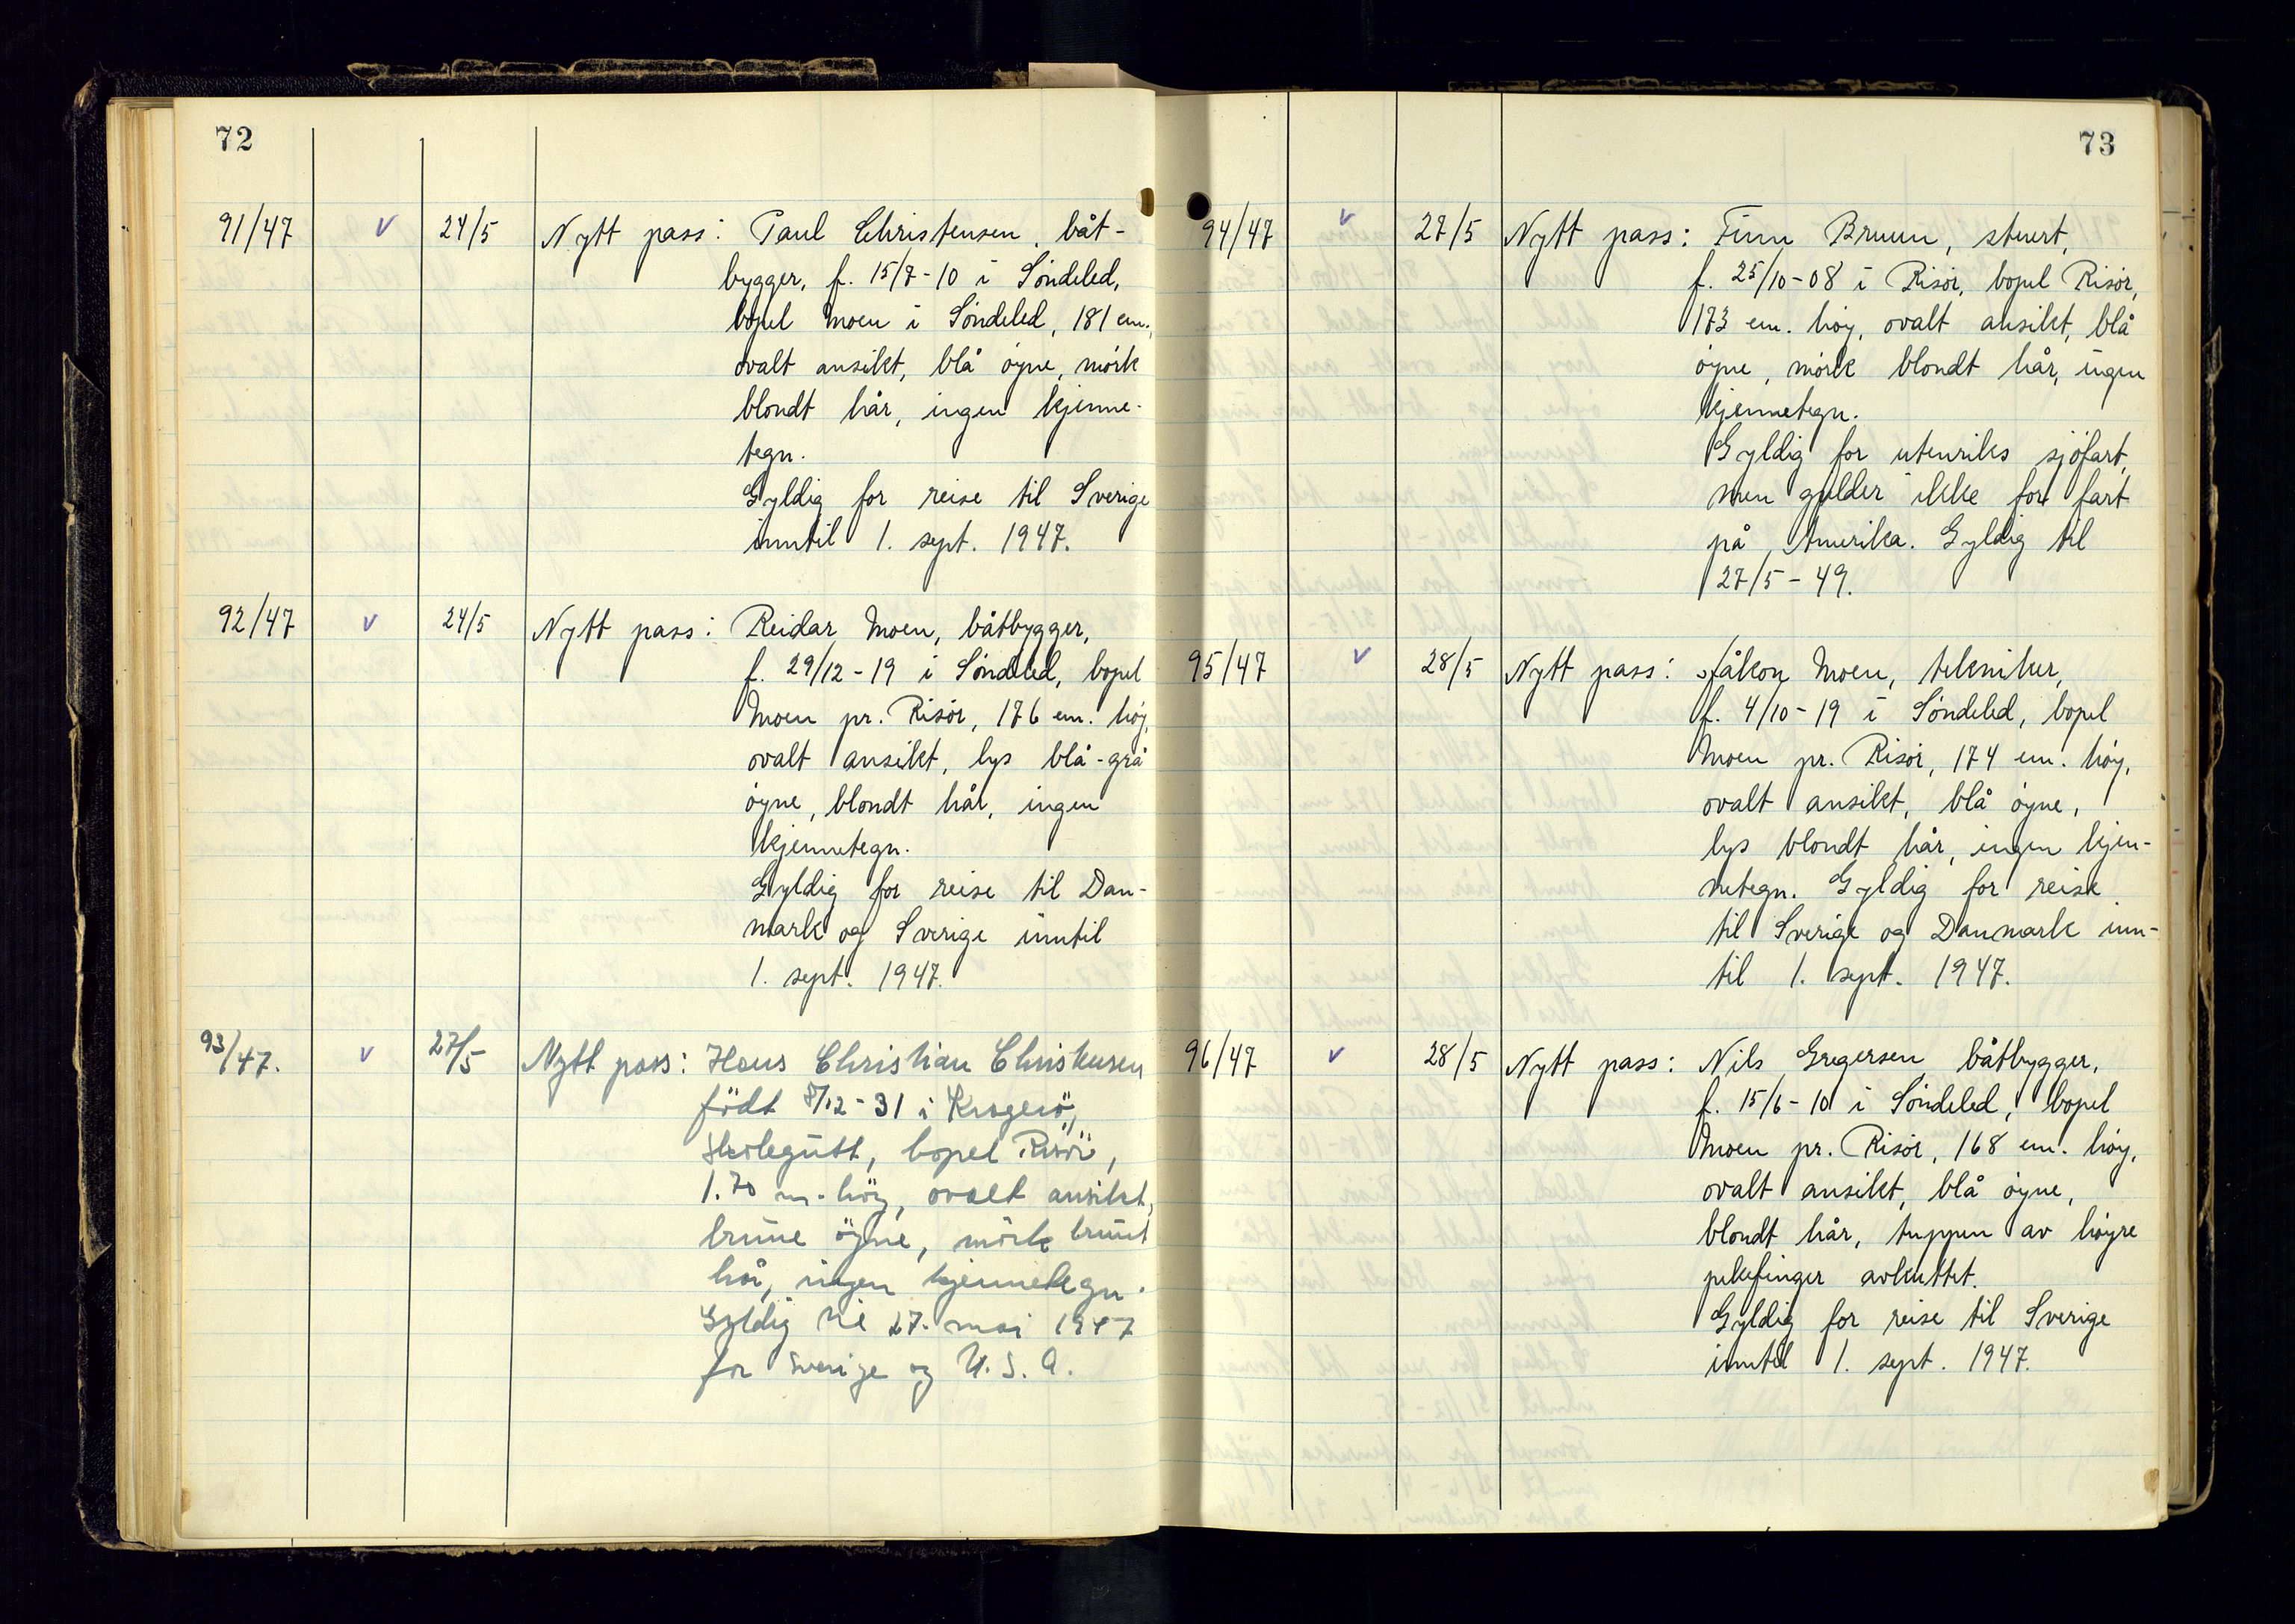 72
91/47 v 24/5 Nytt pass: Paul Christensen, båt-
bygger, f. 15/7-10 i Söndeled,
bopel Moen i Söndeled, 181 cm.,
ovalt ansikt, blå öyne, mörk
blondt hår, ingen kjenne-
tegn.
Gyldig for reise til Sverige
inntil 1. sept. 1947.
92/47 v 24/5 Nytt pass: Reidar Moen, båtbygger,
f. 29/12-19 i Söndeled, bopel
Moen pr. Risör, 176 cm. höy,
ovalt ansikt, lys blå-grå
öyne, blondt hår, ingen
kjennetegn.
Gyldig for reise til Dan-
mark og Sverige inntil
1. sept. 1947.
93/47. v 27/5 Nytt pass: Hans Christian Christensen
födt /12-31 i Kragerö,
Skolegutt, bopel Risör,
1.70 m. höy, ovalt ansikt,
brune öyne, mörk brunt
hår, ingen kjennetegn.
Gyldig til 27. mai 1947
for Sverige og U.S.A.
73
94/47 v 27/5 Nytt pass: Finn Bruun, stuert,
f. 25/10-08 i Risör, bopel Risör,
173 cm. höy, ovalt ansikt, blå
öyne, mörk blondt hår, ingen
kjennetegn.
Gyldig for utenriks sjöfart,
men gjelder ikke for fart
på Amerika. Gyldig til
27/5-49.
95/47 v 28/5 Nytt pass: Håkon Moen, tekniker,
f. 4/10-19 i Söndeled, bopel
Moen pr. Risör, 174 cm. höy,
ovalt ansikt, blå öyne,
lys blondt hår, ingen kjen-
netegn. Gyldig for reise
til Sverige og Danmark inn-
til 1. sept. 1947.
96/47 v 28/5 Nytt pass: Nils Gregersen, båtbygger,
f. 15/6-10 i Söndeled, bopel
Moen pr. Risör, 168 cm. höy,
ovalt ansikt, blå öyne,
blondt hår, tuppen av höyre
pekefinger avkuttet.
Gyldig for reise til Sverige
inntil 1. sept. 1947.